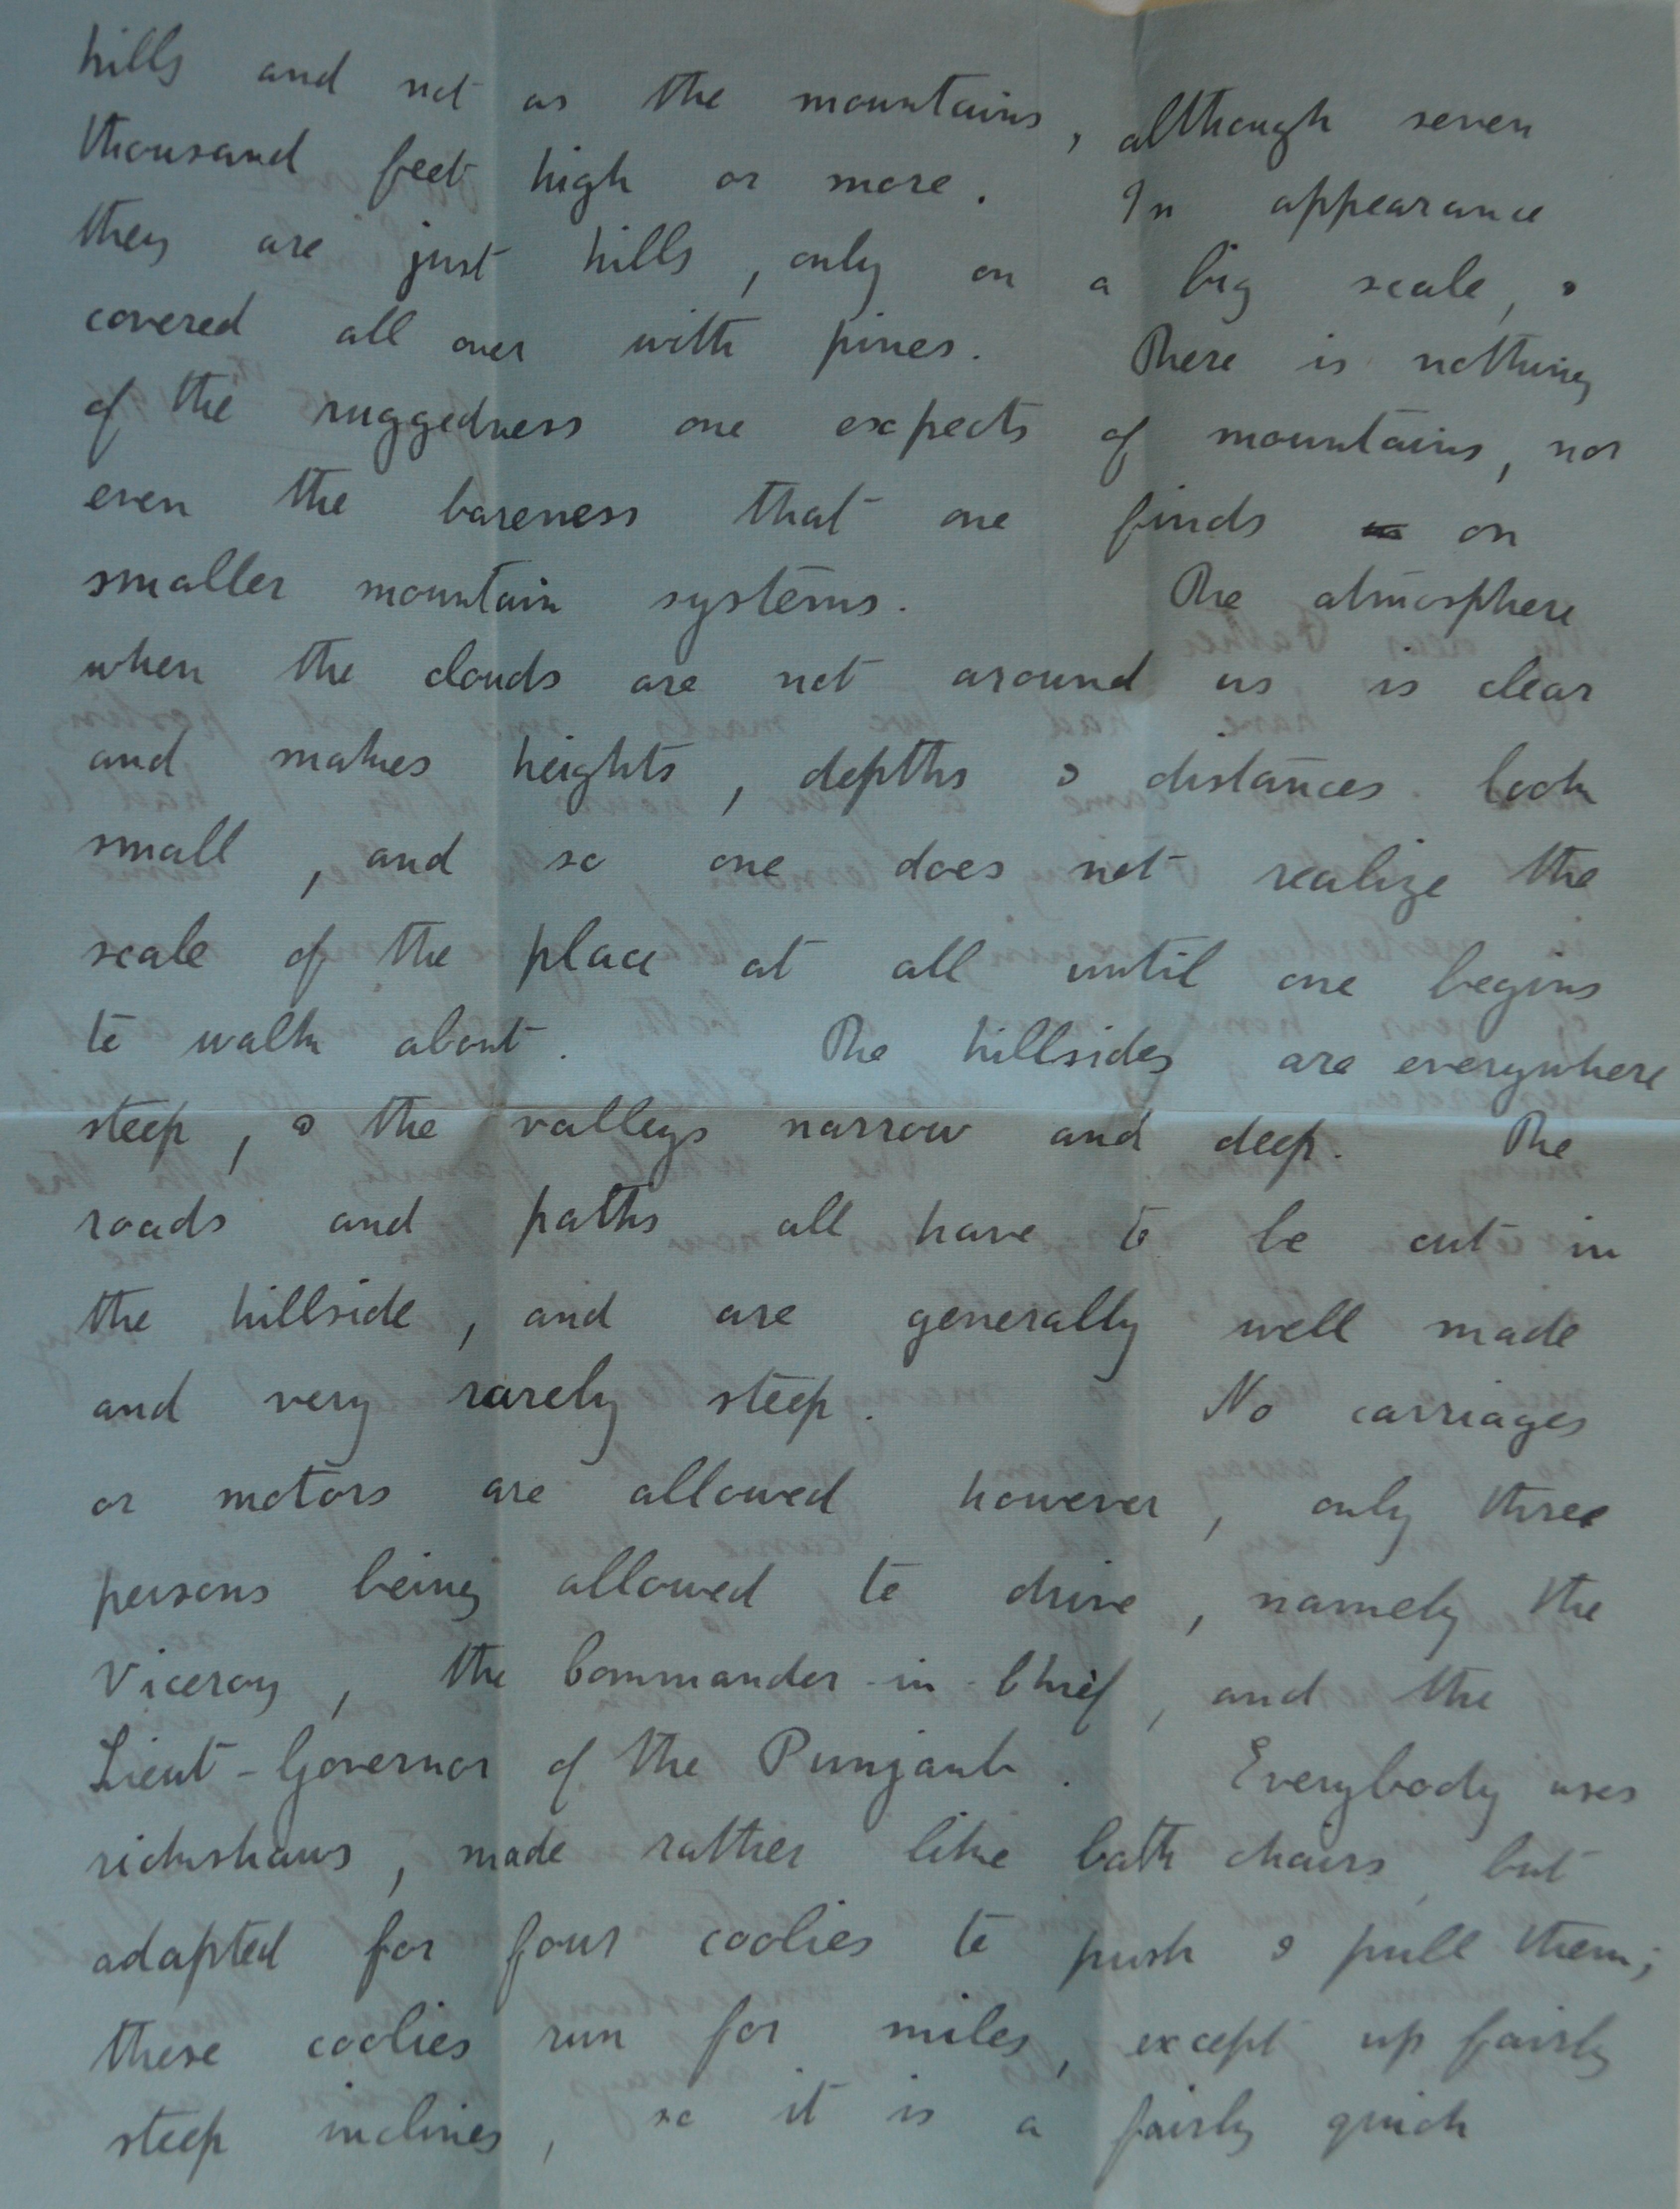 hills and not as the mountains, although seven
thousand feet high or more. In appearance
they are just hills, only on a big scale, &
covered all over with pines. There is nothing
of the ruggedness one expects of mountains, nor
even the bareness that one finds on
smaller mountain systems. The atmosphere
when the clouds are not around us is clear
and makes heights, depths & distances look
small, and so one does not realize the
scale of the place at all until one begins
to walk about. The hillsides are everywhere
steep, & the valleys narrow and deep. The
roads and paths all have to be cut in
the hillside, and are generally well made
and very rarely steep. No carriages
or motors are allowed however, only three
persons being allowed to drive, namely the
Viceroy, the Commander-in-Chief, and the
Lieut-Governor of the Punjaub. Everybody uses
rickshaws, made rather like bath chairs, but
adapted for four coolies to push & pull them;
these coolies run for miles, except up fairly
steep inclines, so it is a fairly quick